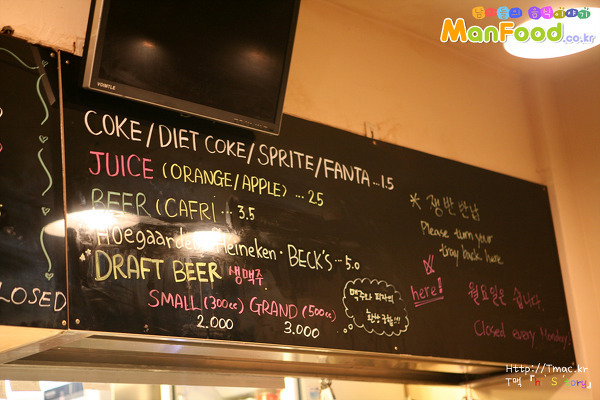 맨푸드의 음식이야기
ManFood.co.kr
VOINTLE
COKE/DIET COKE/SPRITE/FANTA ... 1.5
JUICE (ORANGE/APPLE) ... 2.5
BEER (CAFRI ... 3.5
Hoegaarden · Heineken · BECK'S ... 5.0
*DRAFT BEER 생맥주
SMALL (300cc) GRAND (500cc)
2.000 3.000
맥주와 피자의
환상궁합!!!
* 쟁반 반납
Please turn your
tray back here.
here!
월요일은 쉽니다.
Closed every Monday!
CLOSED
Http://Tmac.kr
T맥『h's S'tory』